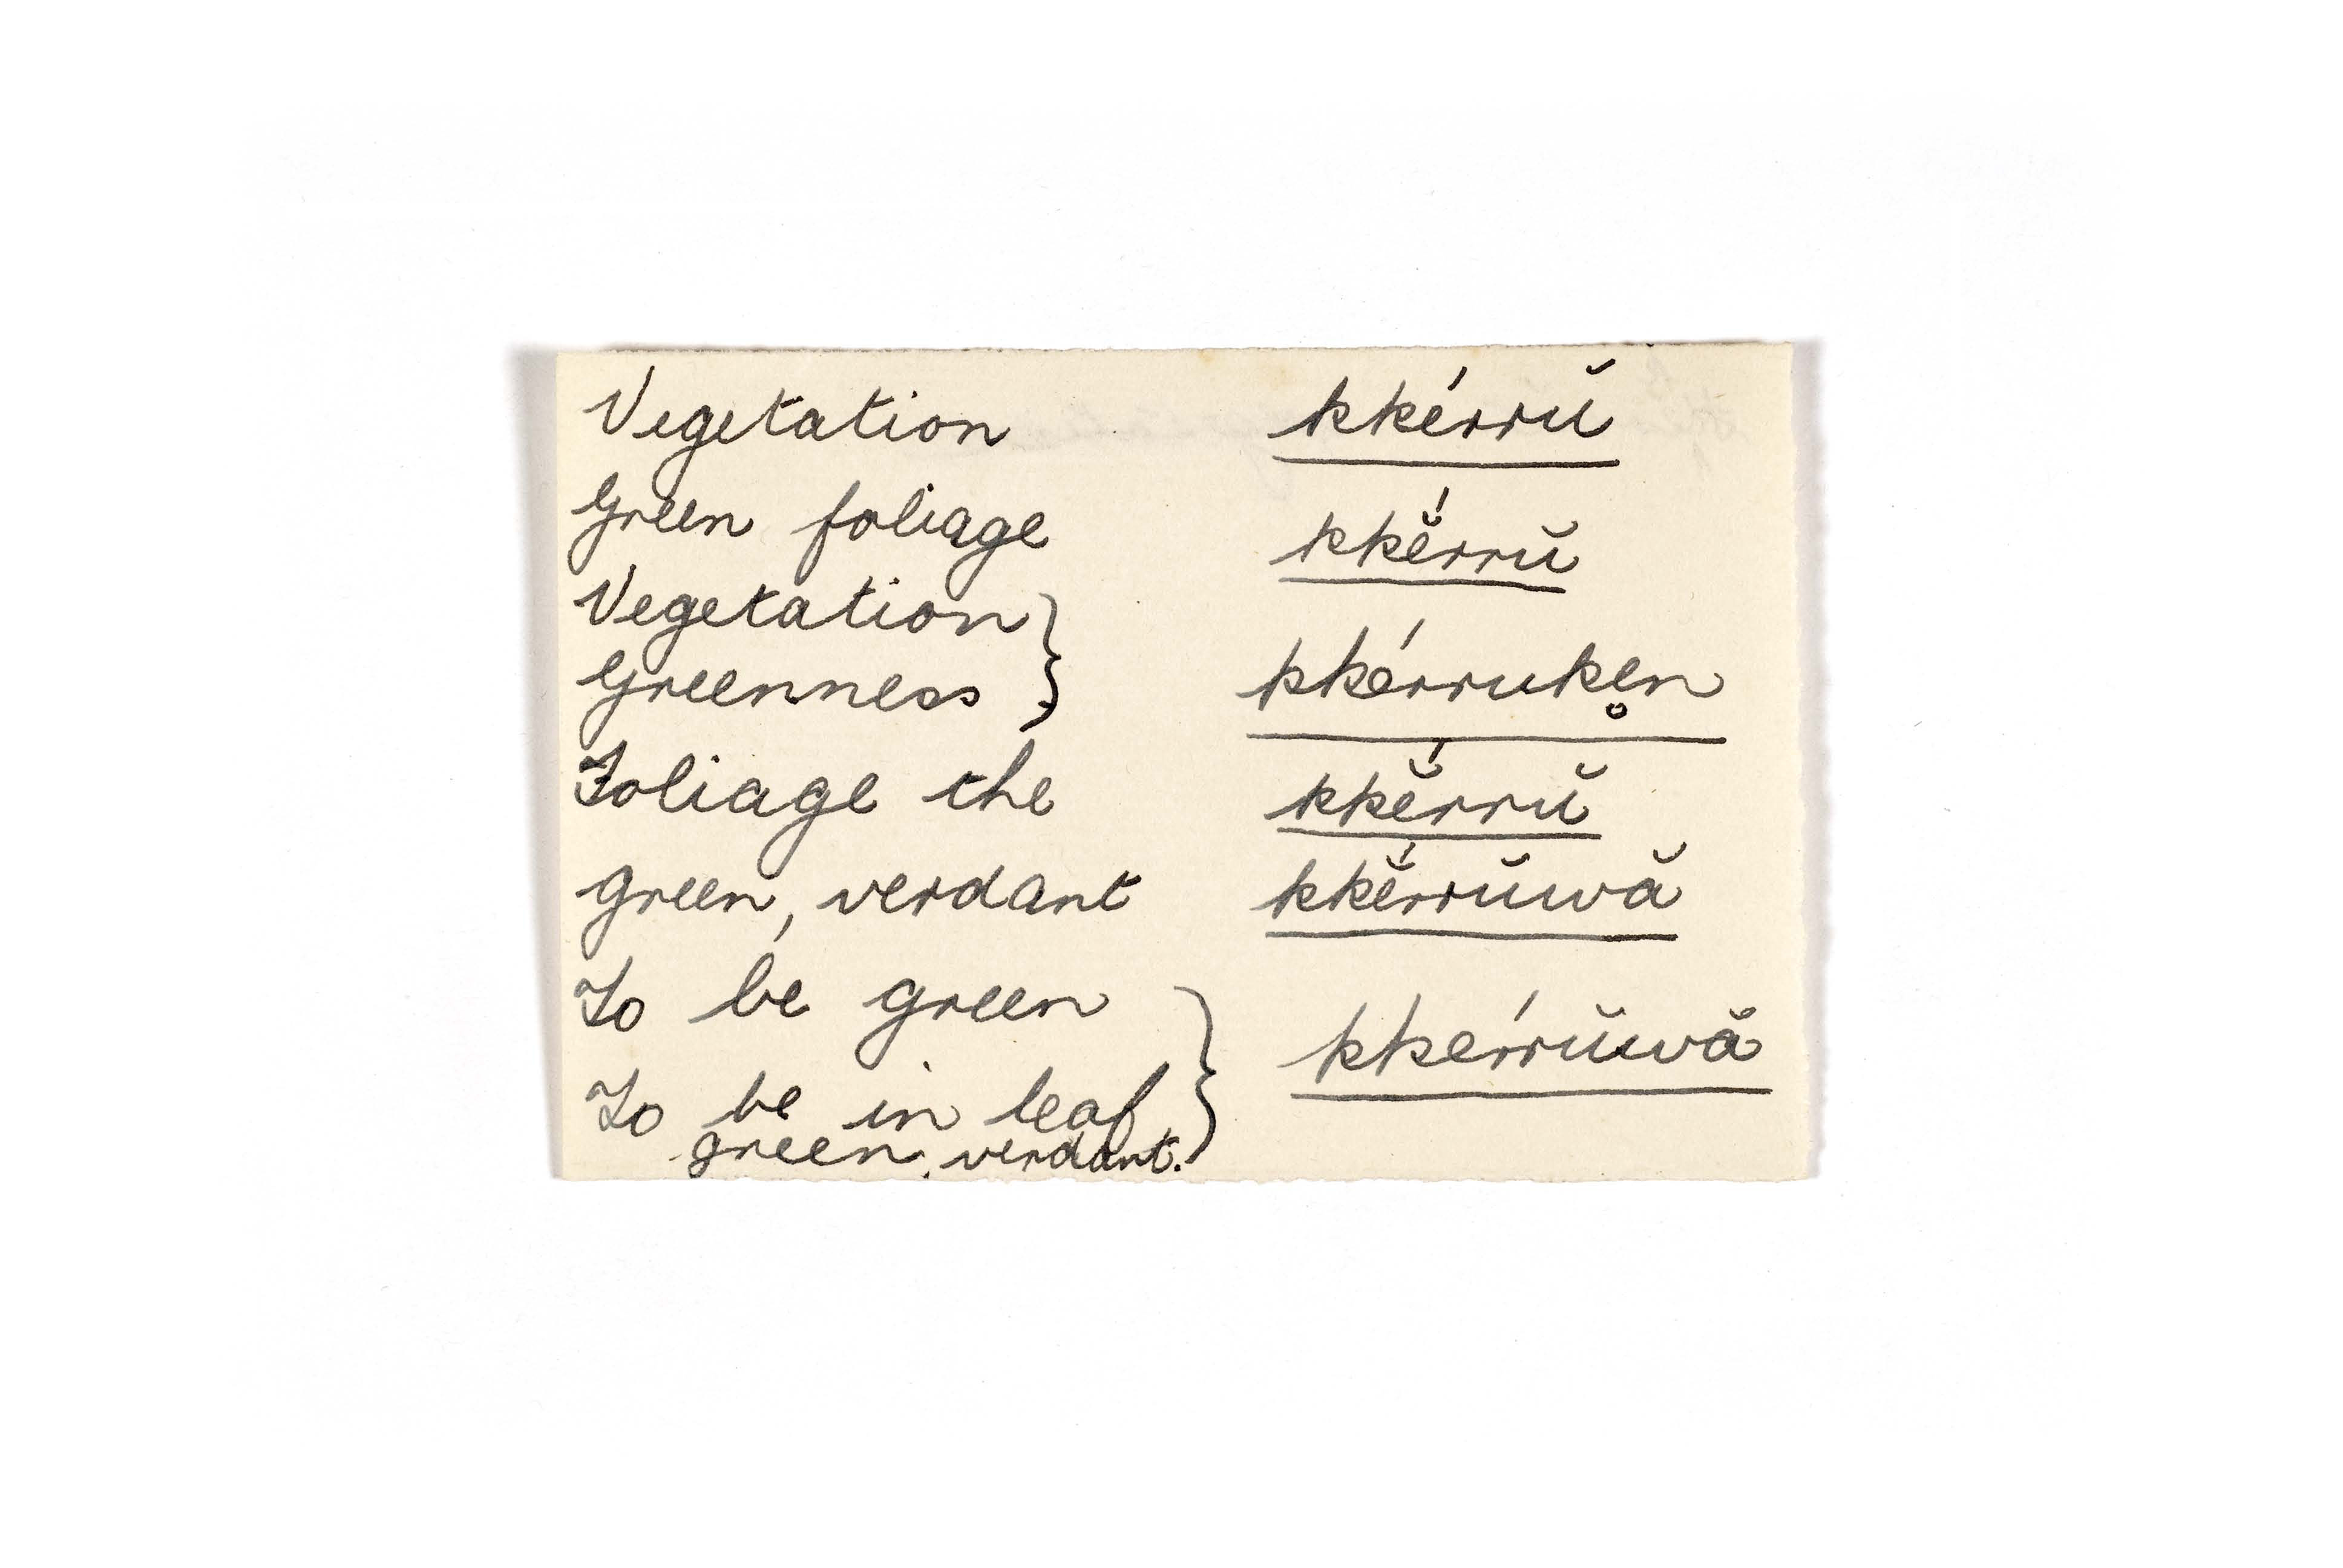 Vegetation kkérrŭ
Green foliage kkĕ́rrŭ
Vegetation }
Greenness } kkérruke̥n
Foliage the kkĕ́rrŭ
green, verdant kkĕ́rrŭwă
To be green } kkérrŭwă
To be in leaf
green, verdant.